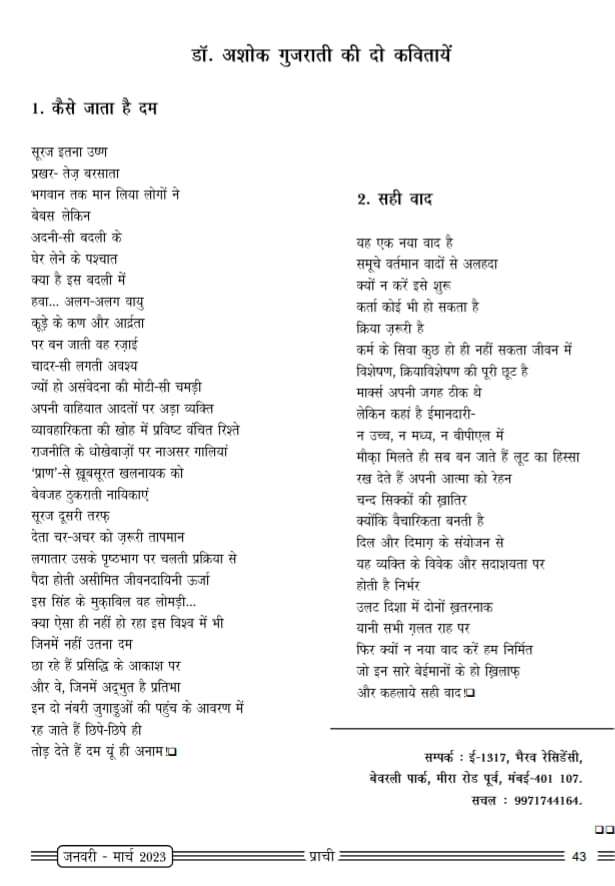 डॉ. अशोक गुजराती की दो कवितायें
1. कैसे जाता है दम
सूरज इतना उष्ण
प्रखर- तेज़ बरसाता
भगवान तक मान लिया लोगों ने
बेबस लेकिन
अदनी-सी बदली के
घेर लेने के पश्चात
क्या है इस बदली में
हवा... अलग-अलग वायु
कूड़े के कण और आर्द्रता
पर बन जाती वह रज़ाई
चादर-सी लगती अवश्य
ज्यों हो असंवेदना की मोटी-सी चमड़ी
अपनी वाहियात आदतों पर अड़ा व्यक्ति
व्यावहारिकता की खोह में प्रविष्ट वंचित रिश्ते
राजनीति के धोखेबाज़ों पर नाअसर गालियां
‘प्राण’-से ख़ूबसूरत खलनायक को
बेवजह ठुकराती नायिकाएं
सूरज दूसरी तरफ़
देता चर-अचर को ज़रूरी तापमान
लगातार उसके पृष्ठभाग पर चलती प्रक्रिया से
पैदा होती असीमित जीवनदायिनी ऊर्जा
इस सिंह के मुक़ाबिल वह लोमड़ी...
क्या ऐसा ही नहीं हो रहा इस विश्व में भी
जिनमें नहीं उतना दम
छा रहे हैं प्रसिद्धि के आकाश पर
और वे, जिनमें अद्भुत है प्रतिभा
इन दो नंबरी जुगाडुओं की पहुंच के आवरण में
रह जाते हैं छिपे-छिपे ही
तोड़ देते हैं दम यूं ही अनाम!❑
2. सही वाद
यह एक नया वाद है
समूचे वर्तमान वादों से अलहदा
क्यों न करें इसे शुरू
कर्ता कोई भी हो सकता है
क्रिया ज़रूरी है
कर्म के सिवा कुछ हो ही नहीं सकता जीवन में
विशेषण, क्रियाविशेषण की पूरी छूट है
मार्क्स अपनी जगह ठीक थे
लेकिन कहां है ईमानदारी-
न उच्च, न मध्य, न बीपीएल में
मौक़ा मिलते ही सब बन जाते हैं लूट का हिस्सा
रख देते हैं अपनी आत्मा को रेहन
चन्द सिक्कों की ख़ातिर
क्योंकि वैचारिकता बनती है
दिल और दिमाग़ के संयोजन से
यह व्यक्ति के विवेक और सदाशयता पर
होती है निर्भर
उलट दिशा में दोनों ख़तरनाक
यानी सभी ग़लत राह पर
फिर क्यों न नया वाद करें हम निर्मित
जो इन सारे बेईमानों के हो ख़िलाफ़
और कहलाये सही वाद!❑
सम्पर्क : ई-1317, भैरव रेसिडेंसी,
बेवरली पार्क, मीरा रोड पूर्व, मंबई-401 107.
सचल : 9971744164.
❑❑
जनवरी - मार्च 2023
प्राची
43